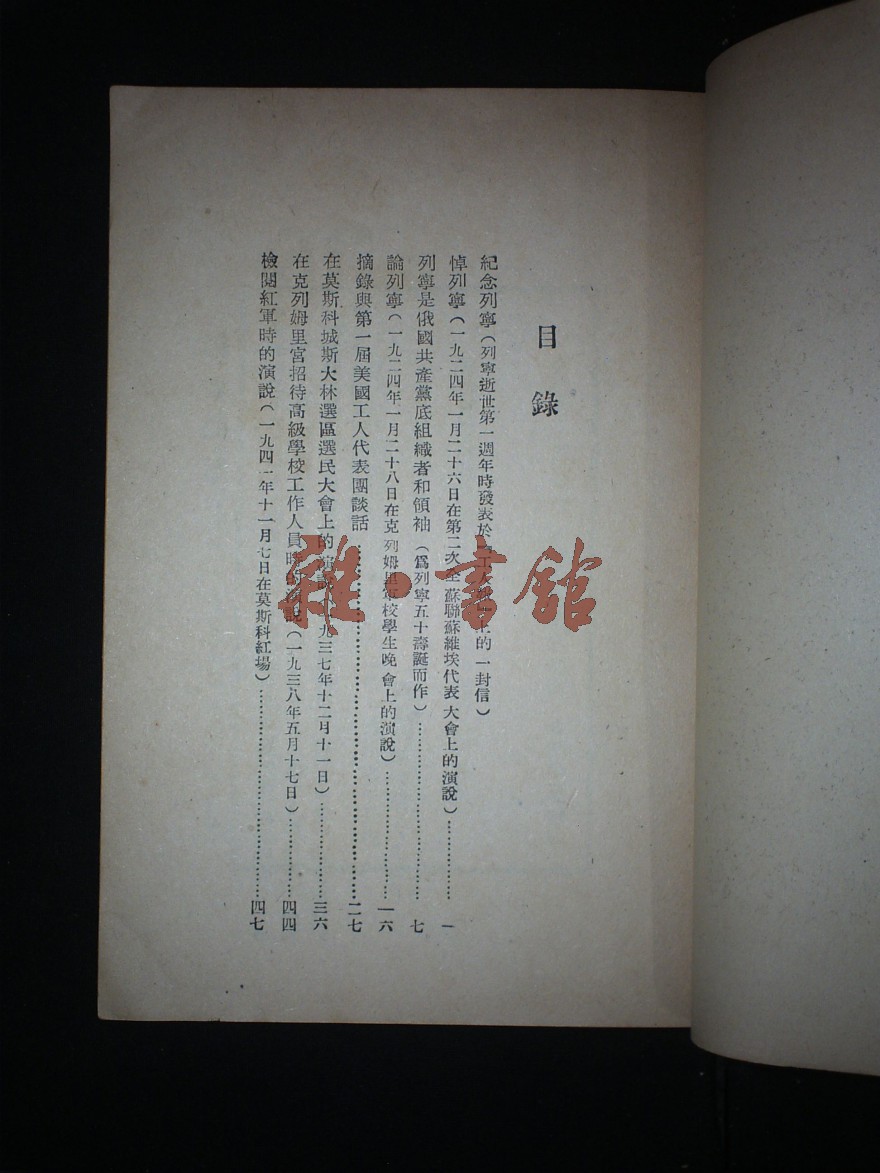 目錄
紀念列寧(列寧逝世第一週年時發表於工人報上的一封信)
悼列寧(一九二四年一月二十六日在第二次全蘇聯蘇維埃代表大會上的演說)……一
列寧是俄國共產黨底組織者和領袖(爲列寧五十壽誕而作)……七
論列寧(一九二四年一月二十八日在克列姆里軍校學生晚會上的演說)……一六
摘錄與第一屆美國工人代表團談話……二七
在莫斯科城斯大林選區選民大會上的演說(一九三七年十二月十一日)……三六
在克列姆里宮招待高級學校工作人員時的演說(一九三八年五月十七日)……四四
檢閱紅軍時的演說(一九四一年十一月七日在莫斯科紅場)……四七
雜·書館